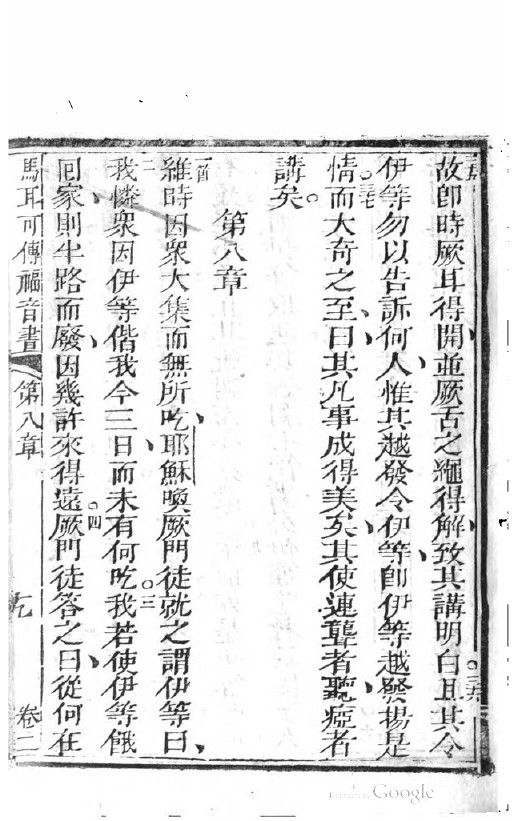 故卽時厥耳得開並厥舌之繩得解致其講明白且其令
伊等勿以告訴何人惟其越發令伊等卽伊等越發揚是
情而大奇之至曰其凡事成得美矣其使連聾者聽瘂者
講矣
第八章
維時因衆大集而無所吃耶穌喚厥門徒就之謂伊等曰
我憐衆因伊等偕我今三日而未有何吃我若使伊等餓
回家則半路而廢因幾許來得遠厥門徒答之曰從何在
馬耳可傳福音書 第八章 九 卷二
Digitized by Google